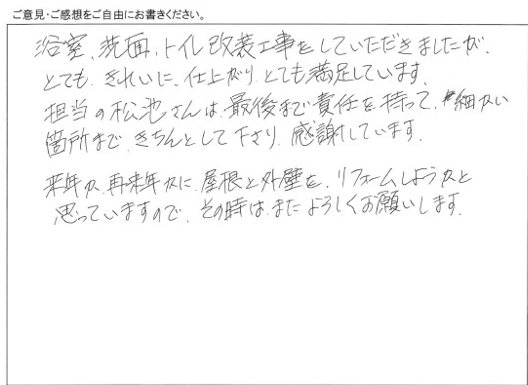 ご意見・ご感想をご自由にお書きください。
浴室、洗面、トイレ改装工事をしていただきましたが、
とても、きれいに、仕上がり、とても満足しています。
担当の松池さんは、最後まで責任を持って、細かい
箇所まで、きちんとして下さり、感謝しています。
来年か、再来年かに、屋根と外壁を、リフォームしようかと
思っていますので、その時は、またよろしくお願いします。